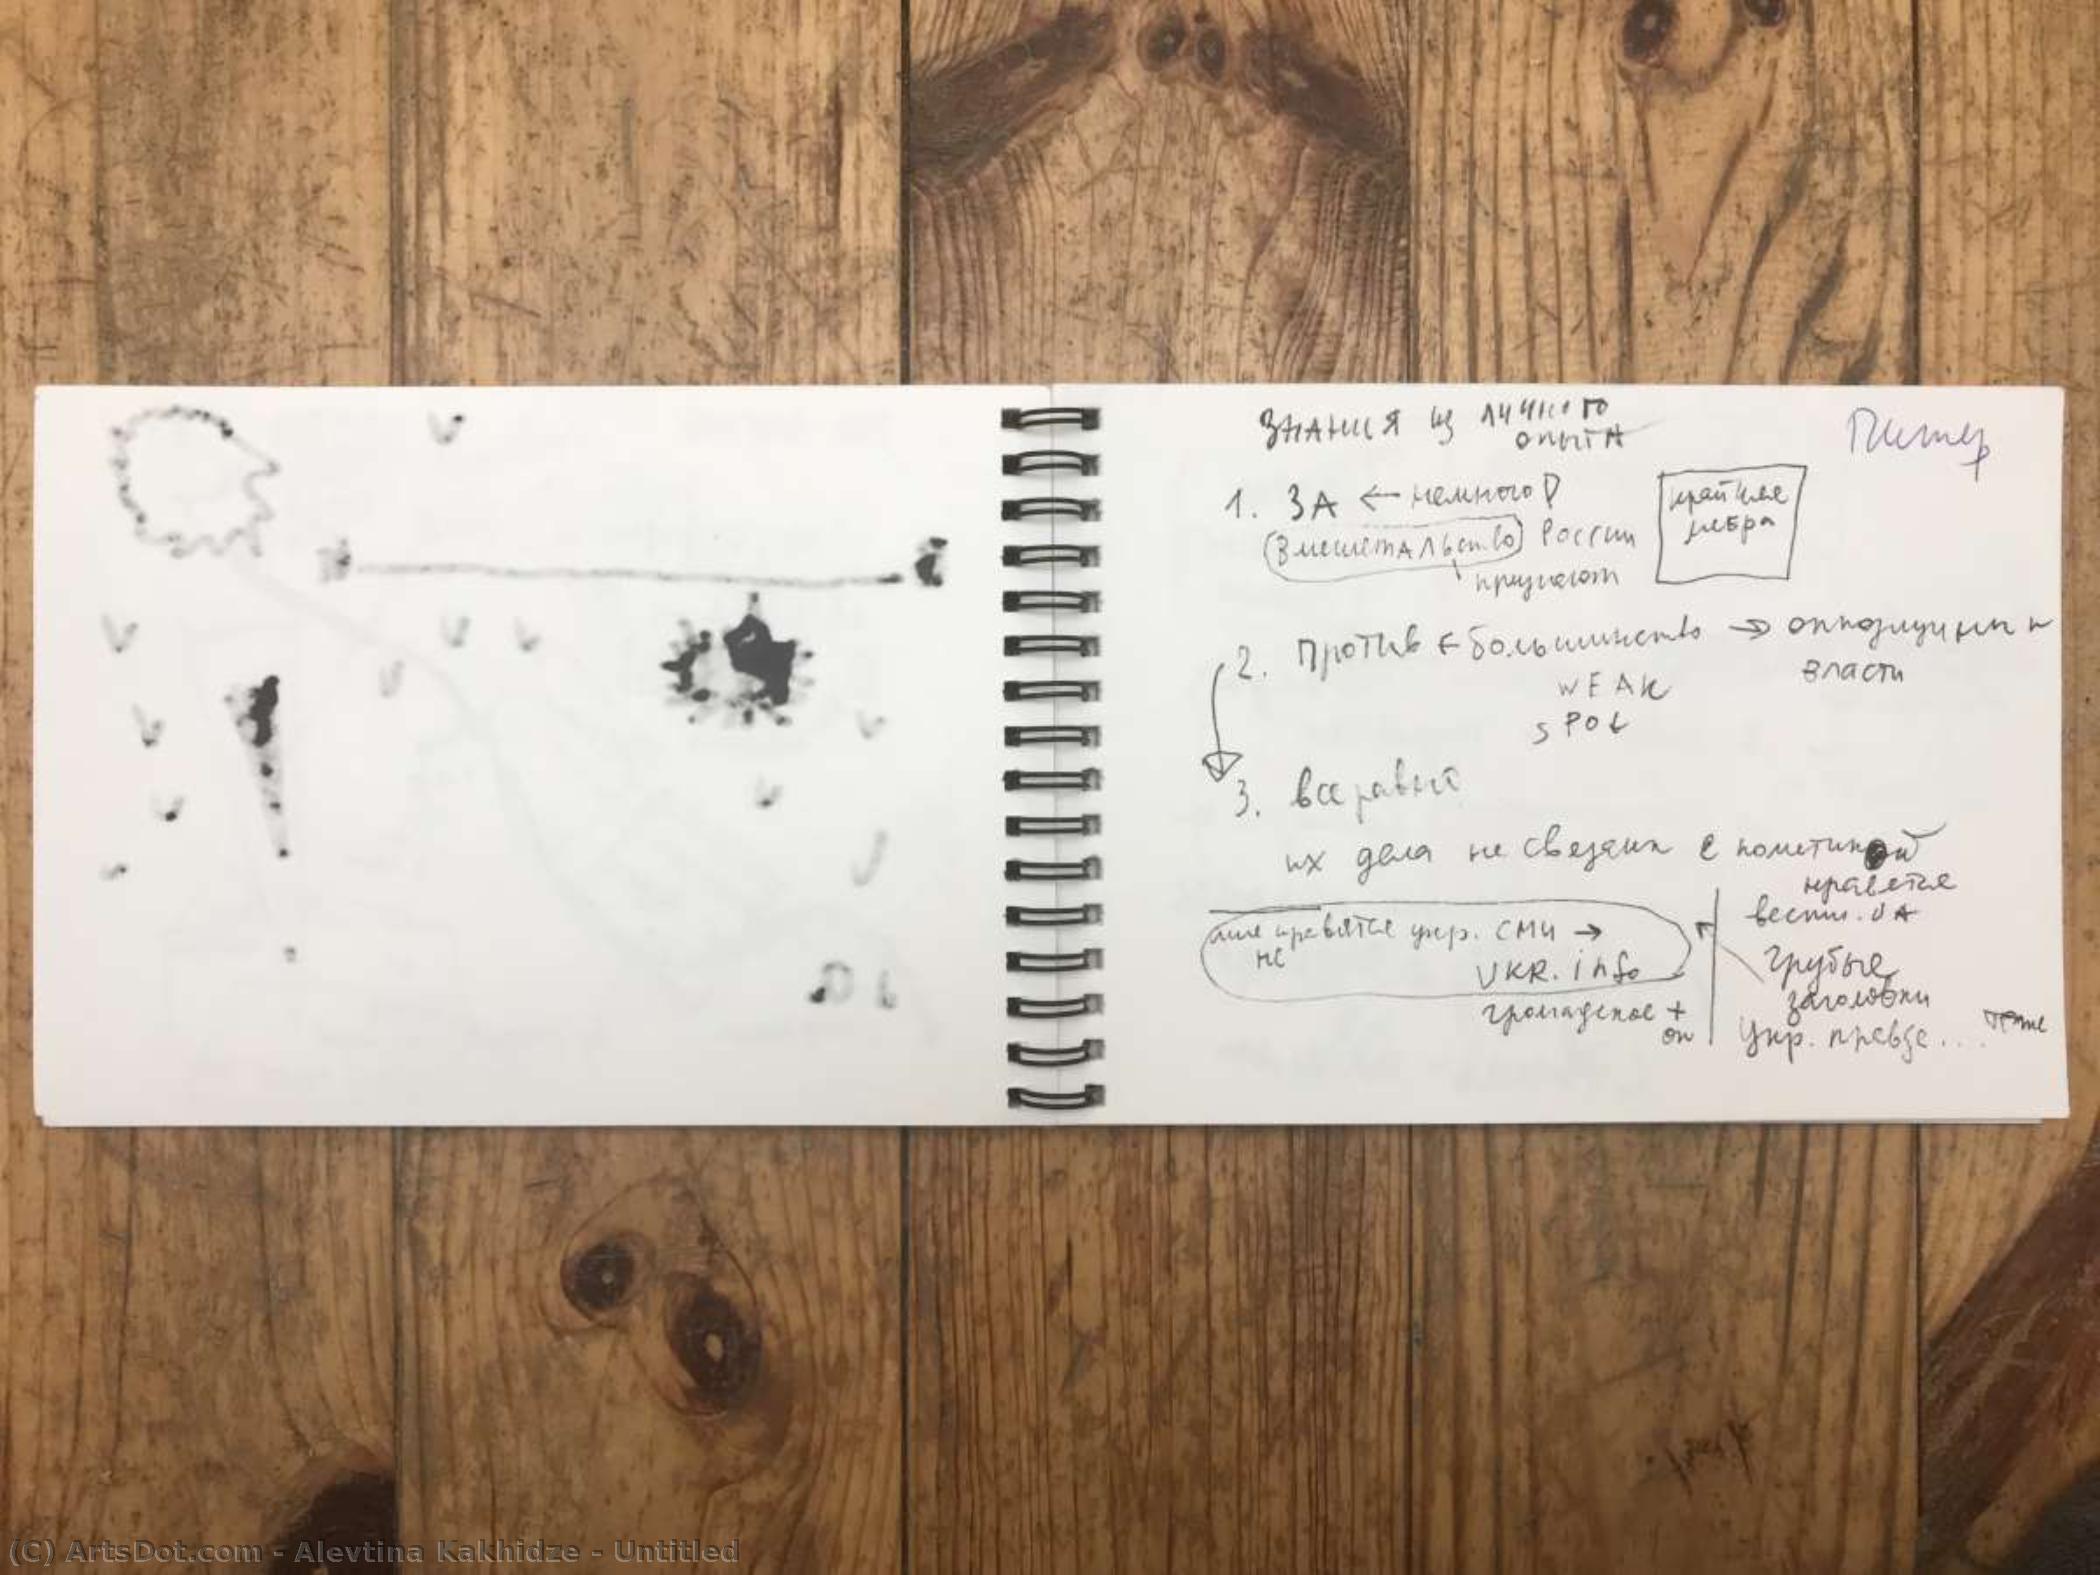 ЗНАНИЯ ИЗ ЛИЧНОГО
ОПЫТА
Питер
1. ЗА ← немного
Вмешательство России
признают
крайние
ребра
2. Против ← большинство → оппозиционны
власти
WEAK
SPOt
3. все равно
их дела не связаны с политикой
нравятся
вести.UA
мне нравятся укр. СМИ →
не
UKR.info
громадское +
он
грубые
заголовки
Укр. правде... тоже
(C) ArtsDot.com - Alevtina Kakhidze - Untitled